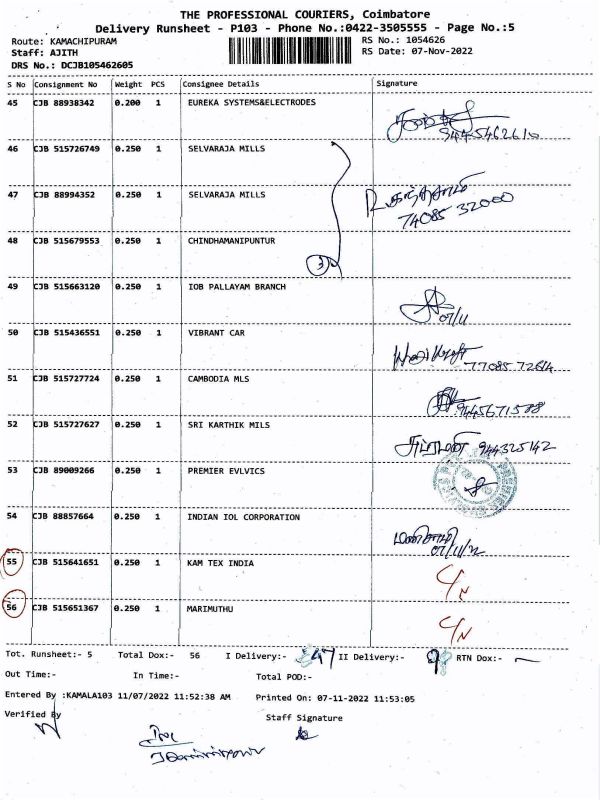 THE PROFESSIONAL COURIERS, Coimbatore
Delivery Runsheet - P103 - Phone No.:0422-3505555 - Page No.:5
Route: KAMACHIPURAM RS No.: 1054626
Staff: AJITH RS Date: 07-Nov-2022
DRS No.: DCJB105462605
S No Consignment No Weight PCS Consignee Details Signature
45 CJB 88938342 0.200 1 EUREKA SYSTEMS&ELECTRODES
9445462610
46 CJB 515726749 0.250 1 SELVARAJA MILLS
47 CJB 88994352 0.250 1 SELVARAJA MILLS
74085 32000
48 CJB 515679553 0.250 1 CHINDHAMANIPUNTUR
3
49 CJB 515663120 0.250 1 IOB PALLAYAM BRANCH
07/11
50 CJB 515436551 0.250 1 VIBRANT CAR
51 CJB 515727724 0.250 1 CAMBODIA MLS
9445671588
52 CJB 515727627 0.250 1 SRI KARTHIK MILS
944325142
53 CJB 89009266 0.250 1 PREMIER EVLVICS
54 CJB 88857664 0.250 1 INDIAN IOL CORPORATION
07/11/22
55 CJB 515641651 0.250 1 KAM TEX INDIA C/N
56 CJB 515651367 0.250 1 MARIMUTHU C/N
Tot. Runsheet:- 5 Total Dox:- 56 I Delivery:- 47 II Delivery:- 9 RTN Dox:- —
Out Time:- In Time:- Total POD:-
Entered By :KAMALA103 11/07/2022 11:52:38 AM Printed On: 07-11-2022 11:53:05
Verified By Staff Signature